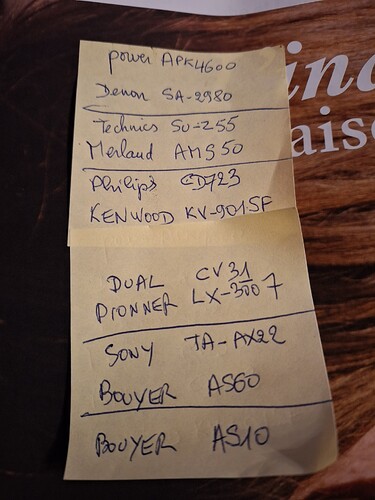 ind
aiso
power APK4600
Denon SA-2980
Technics SU-Z55
Merlaud AMS50
Philips CD723
KENWOOD KV-901SF
DUAL CV31
PIONNER LX-300 7
SONY TA-AX22
BOUYER AS60
BOUYER AS10